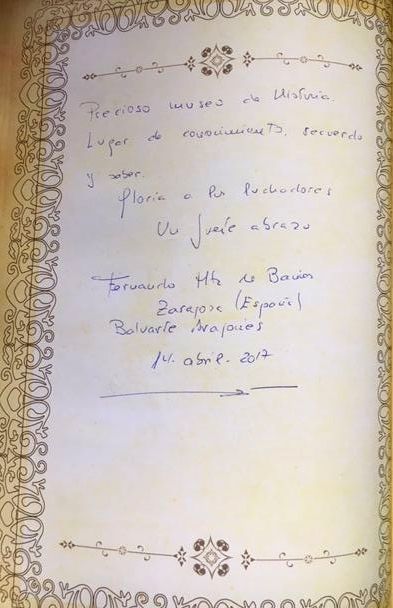 Precioso museo de Historia.
Lugar de conocimiento, recuerdo
y saber.
Gloria a los luchadores
Un fuerte abrazo
Fernando Mtz de Baños
Zaragoza (España)
Baluarte Aragonés
14. abril. 2017